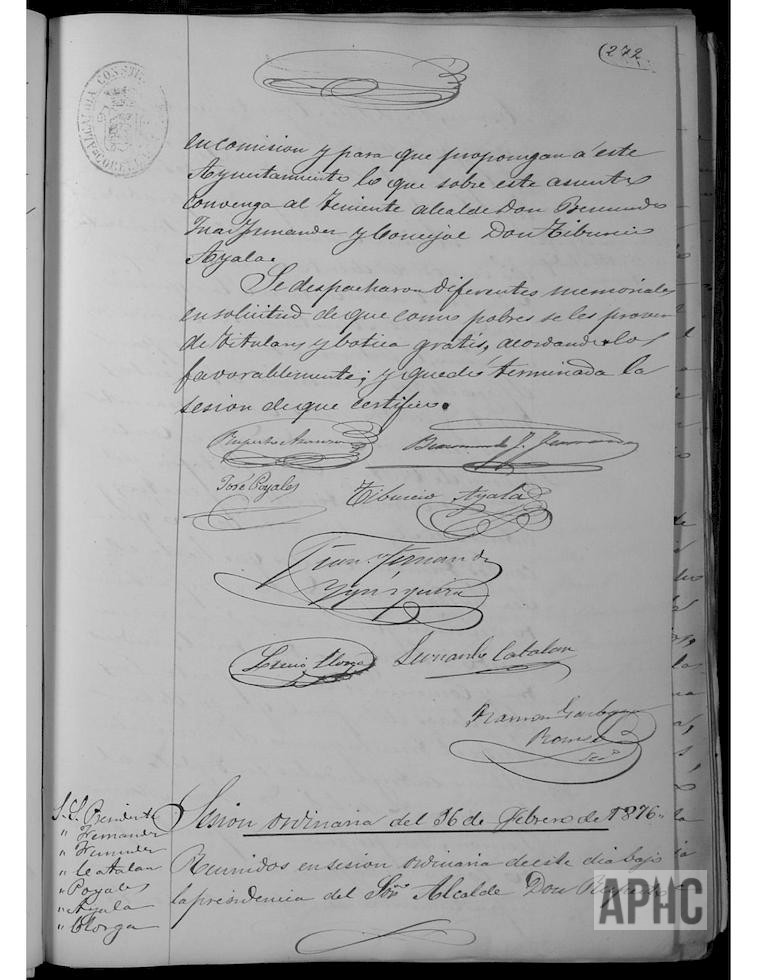 (272
ALCALDIA CONSTI
CORELLA
en comision y para que propongan á este
Ayuntamiento lo que sobre este asunto
convenga al Teniente alcalde Don Bermundo
Fernandez y Concejal Don Tiburcio
Ayala.
Se despacharon diferentes memoriales
en solicitud de que como pobres se les provea
de titulares y botica gratis, acordandolos
favorablemente; y quedó terminada la
sesion de que certifico.
José Poyales
Tiburcio Ayala
Fernando Catalan
Ramon
S.S. Presidente
" Fernandez
" Fernandez
" Catalan
" Poyales
" Ayala
" Llorga
Sesion ordinaria del 16 de Febrero de 1876
Reunidos en sesion ordinaria de este dia bajo
la presidencia del Sor. Alcalde Don
APHC